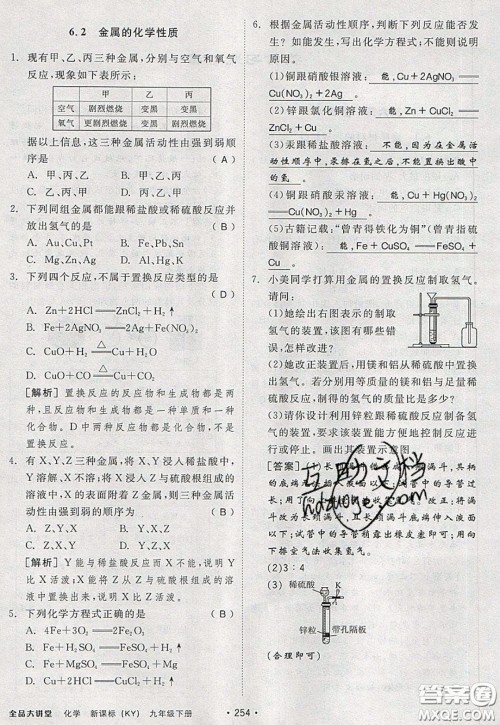 6.2 金属的化学性质
1. 现有甲、乙、丙三种金属,分别与空气和氧气
反应,现象如下表所示:
甲 乙 丙
空气 剧烈燃烧 变黑 变黑
氧气 更剧烈燃烧 变黑 燃烧
据以上信息,这三种金属活动性由强到弱顺
序是 (A)
A. 甲、丙、乙 B. 甲、乙、丙
C. 乙、丙、甲 D. 丙、乙、甲
2. 下列同组金属都能跟稀盐酸或稀硫酸反应并
放出氢气的是 (B)
A. Au,Cu,Pt B. Fe,Pb,Sn
C. Mg,Zn,Ag D. Al,Mn,Hg
3. 下列四个反应,不属于置换反应类型的是
(D)
A. Zn+2HCl══ZnCl₂+H₂↑
B. Fe+2AgNO₃══Fe(NO₃)₂+2Ag
C. CuO+H₂ △══Cu+H₂O
D. CuO+CO △══Cu+CO₂
[解析] 置换反应的反应物和生成物都是两
种,且反应物和生成物都是一种单质和一种
化合物。D中两种反应物都是化合物,不是
置换反应。
4. 有X、Y、Z三种金属,将X、Y浸入稀盐酸中,
Y溶解,X不溶解;将X浸入Z的硫酸盐组成的
溶液中,X的表面附着Z,则金属活动性由强
到弱顺序为 (A)
A. Y、X、Z B. X、Y、Z
C. Z、Y、X D. X、Z、Y
[解析] Y能与稀盐酸反应而X不能反应,说
明Y比X活泼;X能与Z的硫酸盐组成的溶
液发生置换反应,说明X比Z活泼。
5. 下列化学方程式正确的是 (B)
A. 4Fe+3O₂══2Fe₂O₃
B. Fe+H₂SO₄══FeSO₄+H₂↑
C. Fe+MgSO₄══FeSO₄+Mg
D. Fe+HCl══FeCl₂+H₂↑
6. 根据金属活动性顺序,判断下列反应能否发
生?如能发生,写出化学方程式;不能发生的
说明原因。
(1)铜跟硝酸银溶液: 能,Cu+2AgNO₃══
Cu(NO₃)₂+2Ag 。
(2)锌跟氯化铜溶液: 能,Zn+CuCl₂══
ZnCl₂+Cu 。
(3)汞跟稀盐酸溶液: 不能,因为在金属活
动性顺序中,汞排在氢之后,不能置换出酸中
的氢 。
(4)铜跟硝酸汞溶液: 能,Cu+Hg(NO₃)₂
══Cu(NO₃)₂+Hg 。
(5)古籍记载:“曾青得铁化为铜”(曾青指硫
酸铜溶液): 能,Fe+CuSO₄══FeSO₄+Cu 。
7. 小美同学打算用金属的置换反应制取氢气。
请问:
(1)她绘出右图表示的制取
氢气的装置,该图有哪些错
误,怎样改进?
(2)她改正装置后,用镁和铝从稀硫酸中置换
出氢气。若分别用等质量的镁和铝制得氢气
的质量比是多少?
(3)请你设计利用锌粒跟稀硫酸反应制备氢
气的装置,要求该装置能方便地控制反应发
生或停止。画出其装置示意图。
[答案] (1)
液面以下;试管中的导管稍露出橡皮塞即可;用向
下排空气法收集氢气。
(2)3:4
(3)稀硫酸 K
锌粒 带孔隔板
(合理即可)
全品大讲堂 化学 新课标(KY) 九年级下册 · 254 ·